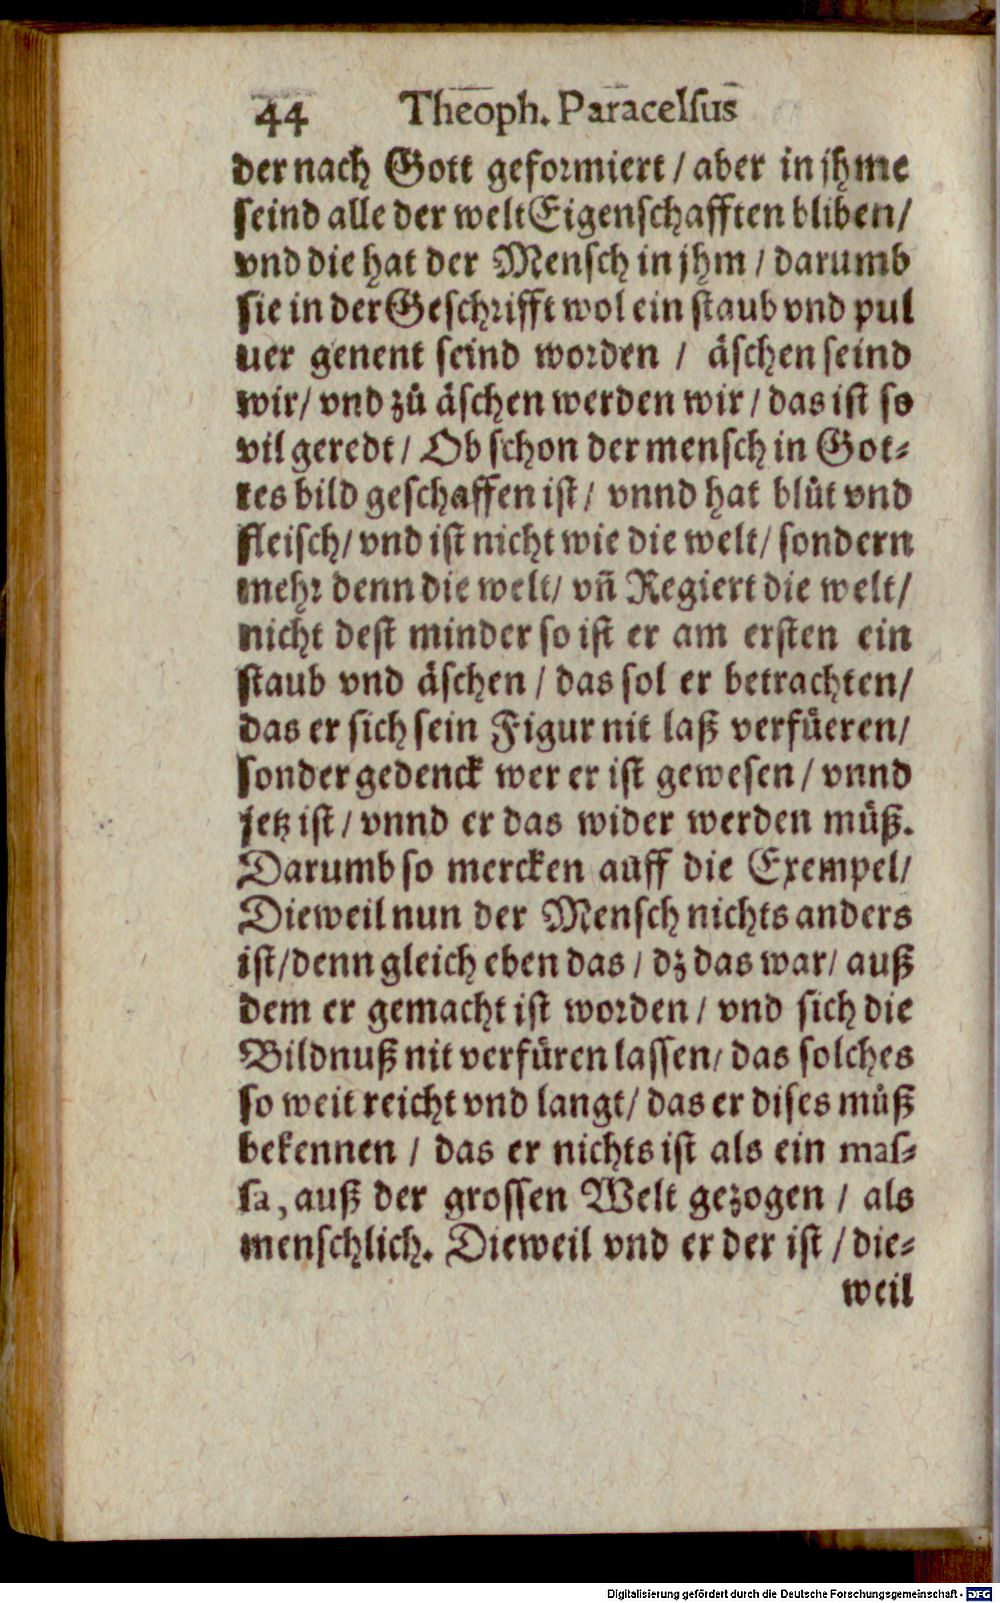 44 Theoph. Paracelsus
der nach Gott geformiert / aber in jhme
seind alle der welt Eigenschafften bliben /
vnd die hat der Mensch in jhm / darumb
sie in der Geschrifft wol ein staub vnd pul
uer genent seind worden / äschen seind
wir / vnd zů äschen werden wir / das ist so
vil geredt / Ob schon der mensch in Got⸗
tes bild geschaffen ist / vnnd hat blůt vnd
fleisch / vnd ist nicht wie die welt / sondern
mehr denn die welt / vn̄ Regiert die welt /
nicht dest minder so ist er am ersten ein
staub vnd äschen / das sol er betrachten /
das er sich sein Figur nit laß verfüeren /
sonder gedenck wer er ist gewesen / vnnd
jetz ist / vnnd er das wider werden můß.
Darumb so mercken auff die Exempel /
Dieweil nun der Mensch nichts anders
ist / denn gleich eben das / dz das war / auß
dem er gemacht ist worden / vnd sich die
Bildnuß nit verfüren lassen / das solches
so weit reicht vnd langt / das er dises můß
bekennen / das er nichts ist als ein mas⸗
sa, auß der grossen Welt gezogen / als
menschlich. Dieweil vnd er der ist / die⸗
weil
Digitalisierung gefördert durch die Deutsche Forschungsgemeinschaft - DFG